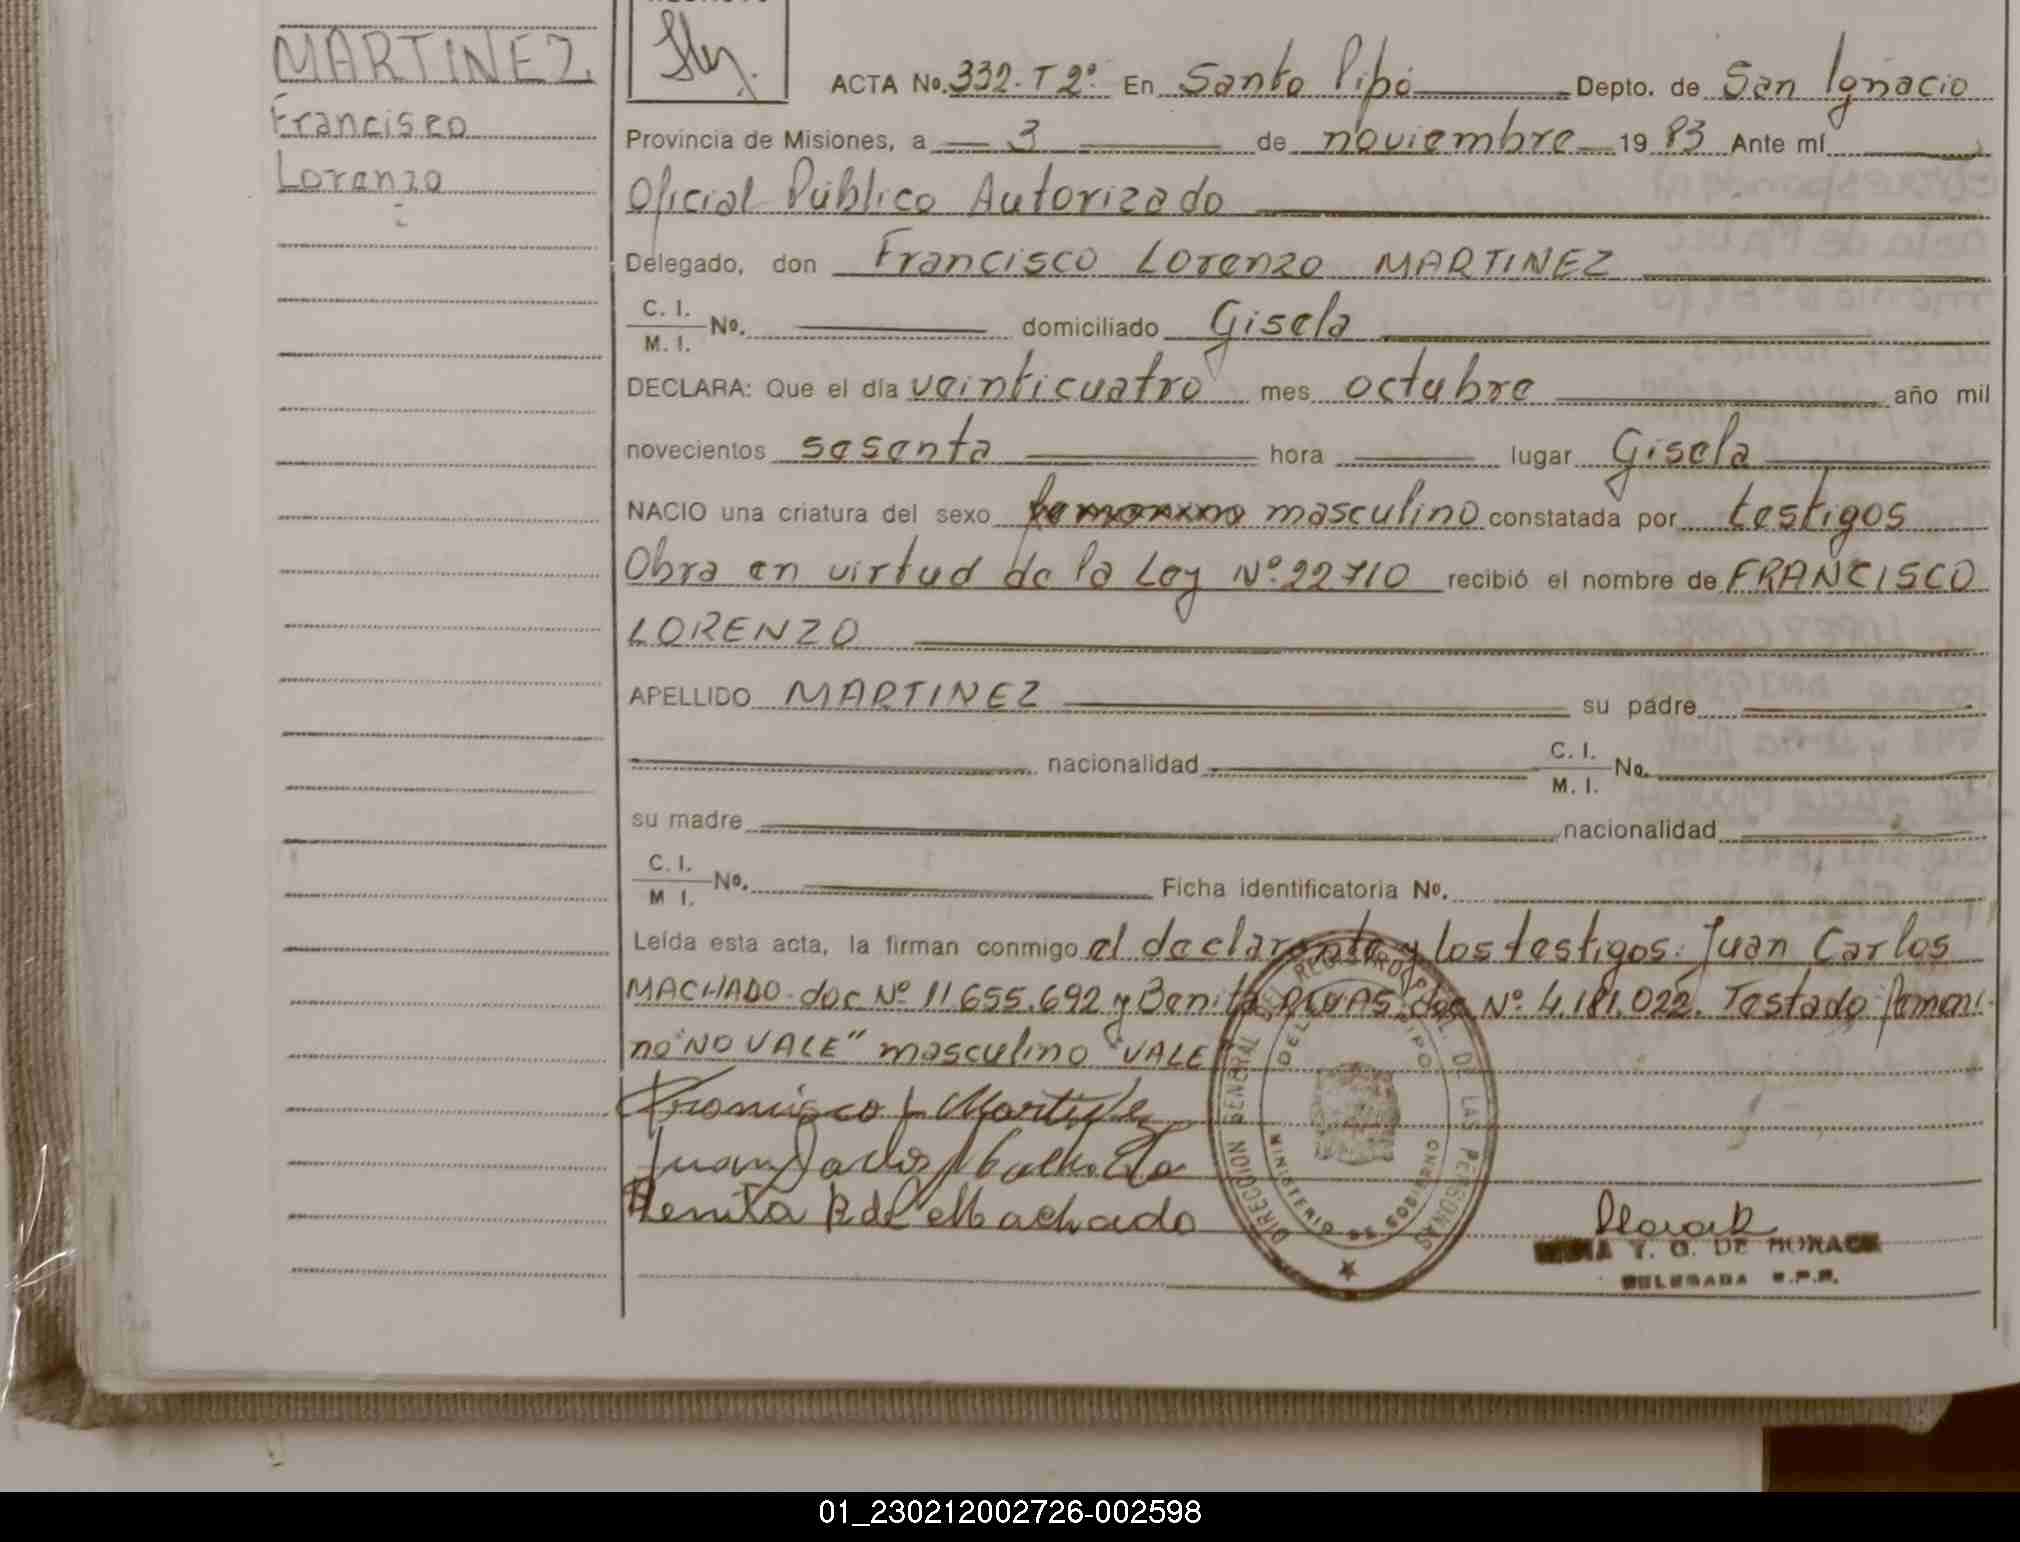 MARTINEZ
Francisco
Lorenzo
ACTA No. 332-T2º En Santo Pipó Depto. de San Ignacio
Provincia de Misiones, a 3 de noviembre 1983 Ante mí
Oficial Público Autorizado
Delegado, don Francisco Lorenzo MARTINEZ
C. I.
M. I. No. domiciliado Gisela
DECLARA: Que el día veinticuatro mes octubre año mil
novecientos sesenta hora lugar Gisela
NACIO una criatura del sexo femenino masculino constatada por testigos
Obra en virtud de la Ley Nº 22710 recibió el nombre de FRANCISCO
LORENZO
APELLIDO MARTINEZ su padre
nacionalidad C. I.
M. I. No.
su madre nacionalidad
C. I.
M I. No. Ficha identificatoria No.
Leída esta acta, la firman conmigo el declarante y los testigos: Juan Carlos
MACHADO-doc Nº 11.655.692 y Benita RIVAS doc Nº 4.181.022. Testado femeni-
no "NO VALE" masculino "VALE"
Francisco L Martinez
Juan Carlos Machado
Benita R de Machado
DIRECCION GENERAL DEL REGISTRO DE LAS PERSONAS
MINISTERIO DE GOBIERNO
Y. G. DE MORACK
DELEGADA R.P.P.
01_230212002726-002598